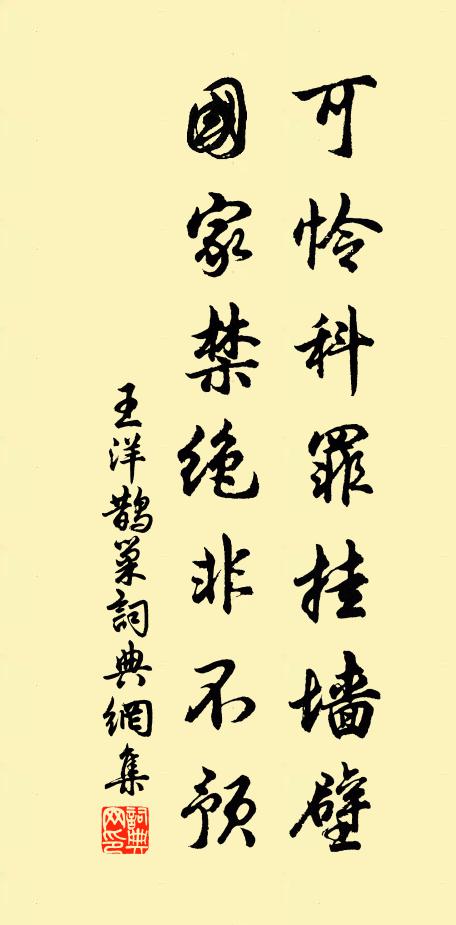 可怜科罪挂墙壁
國家禁绝非不预
王洋鹊巢詞典網集
詞典网印